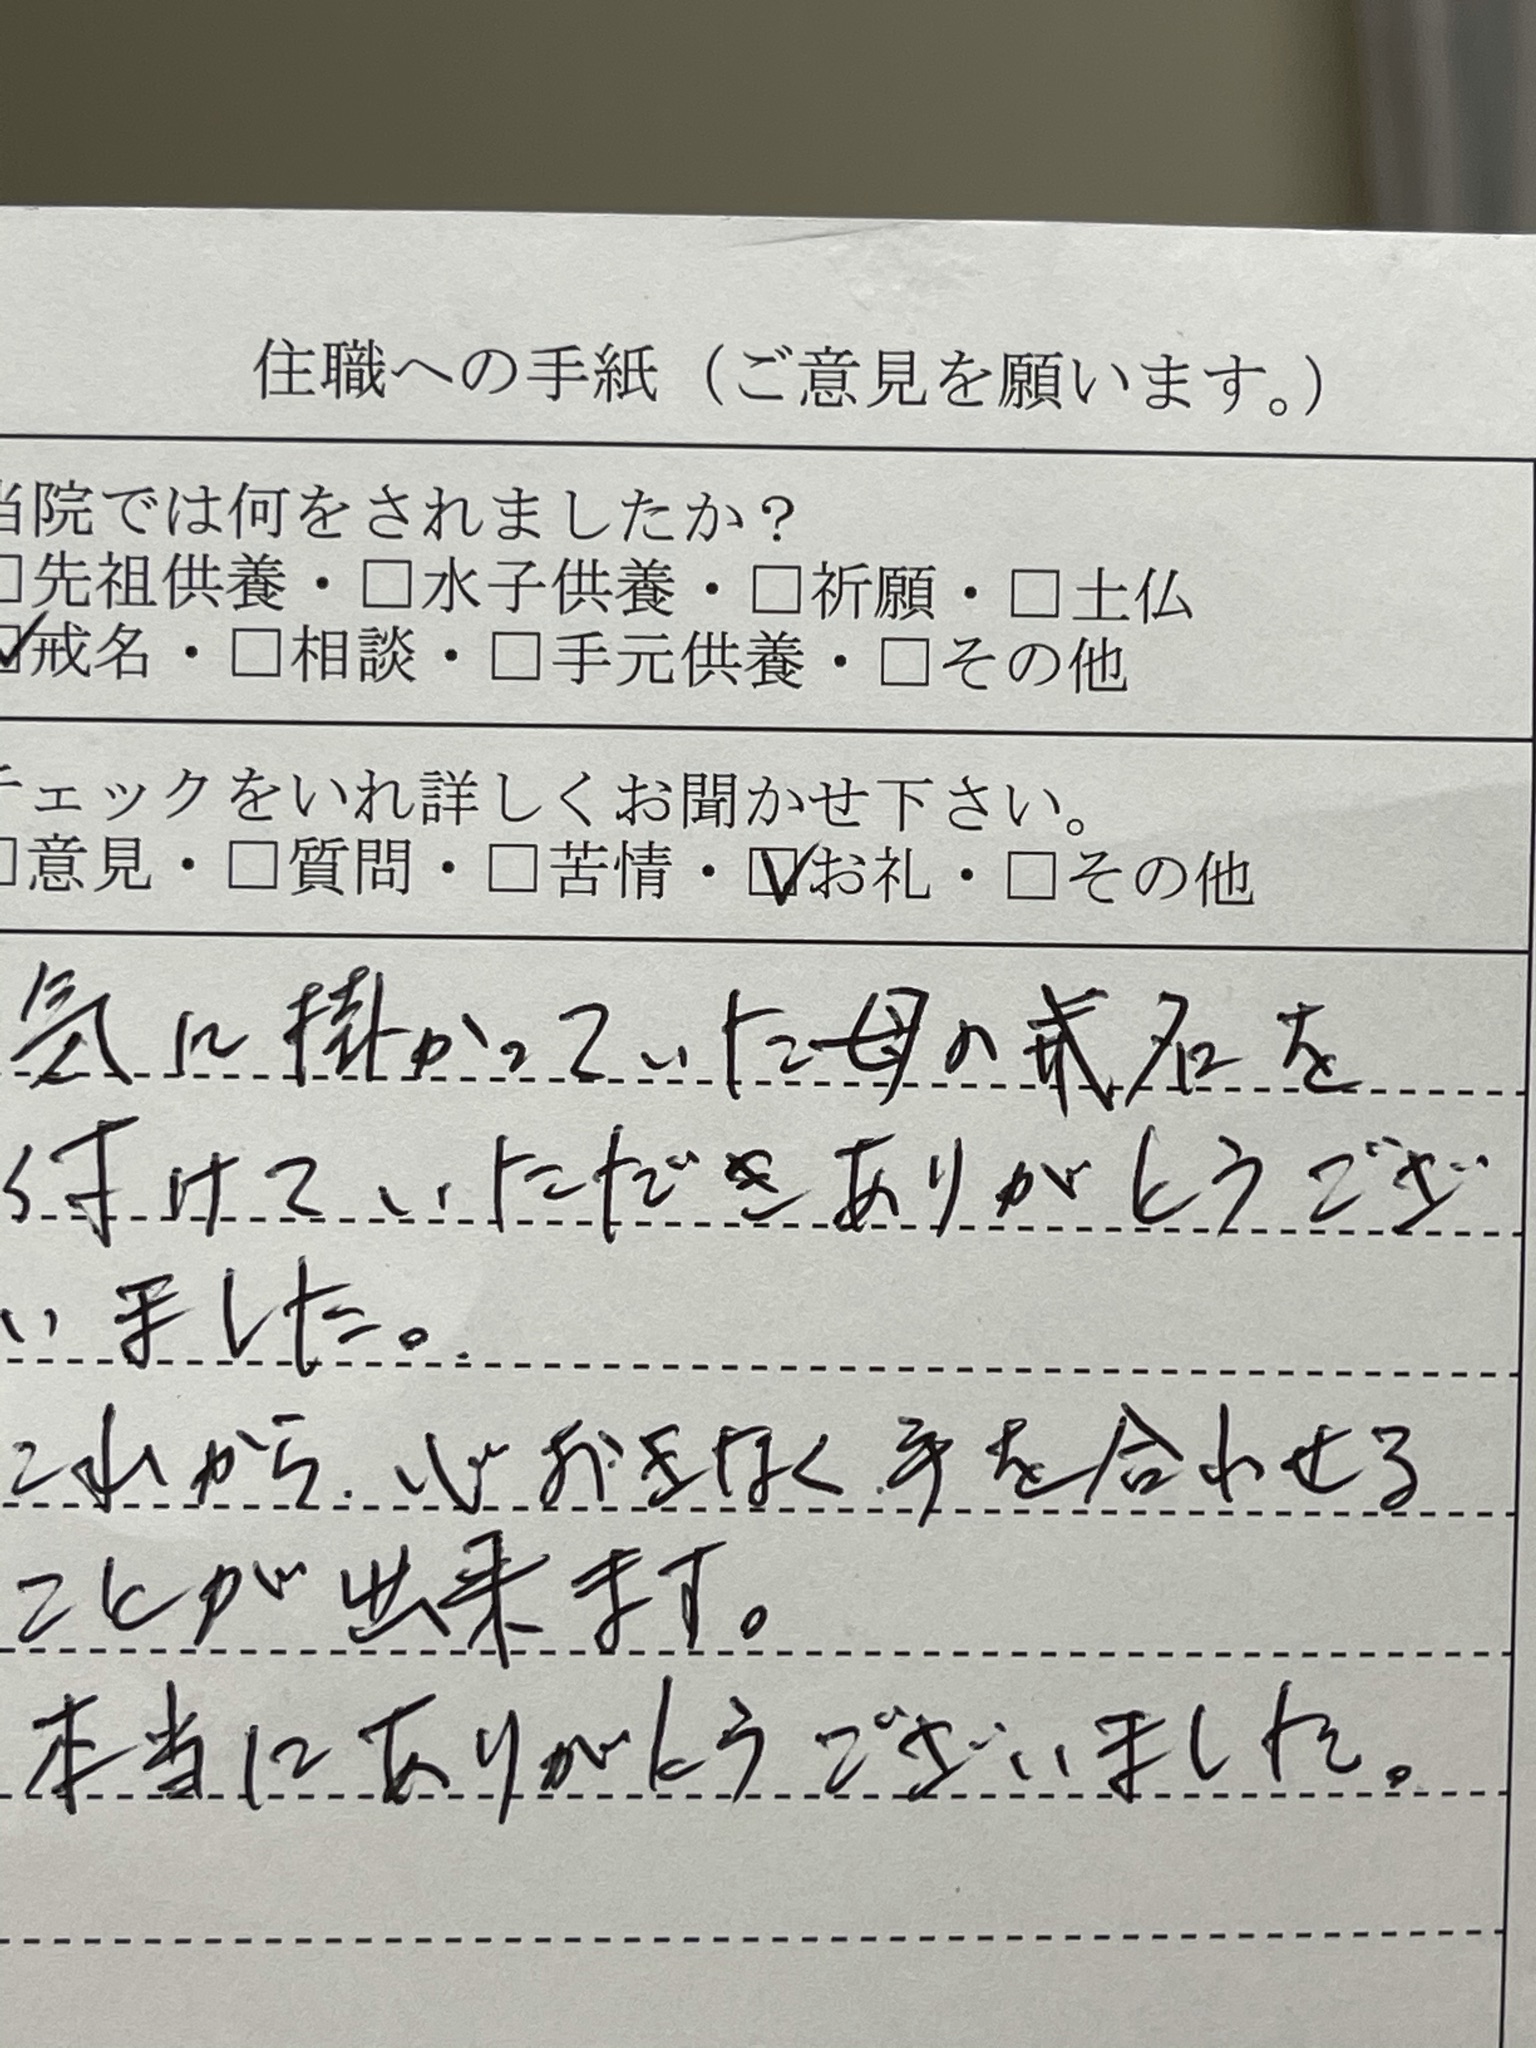 住職への手紙（ご意見を願います。）
当院では何をされましたか？
□先祖供養・□水子供養・□祈願・□土仏
☑戒名・□相談・□手元供養・□その他
チェックをいれ詳しくお聞かせ下さい。
□意見・□質問・□苦情・☑お礼・□その他
気に掛かっていた母の戒名を
付けていただきありがとうござ
いました。
これから心おきなく手を合わせる
ことが出来ます。
本当にありがとうございました。